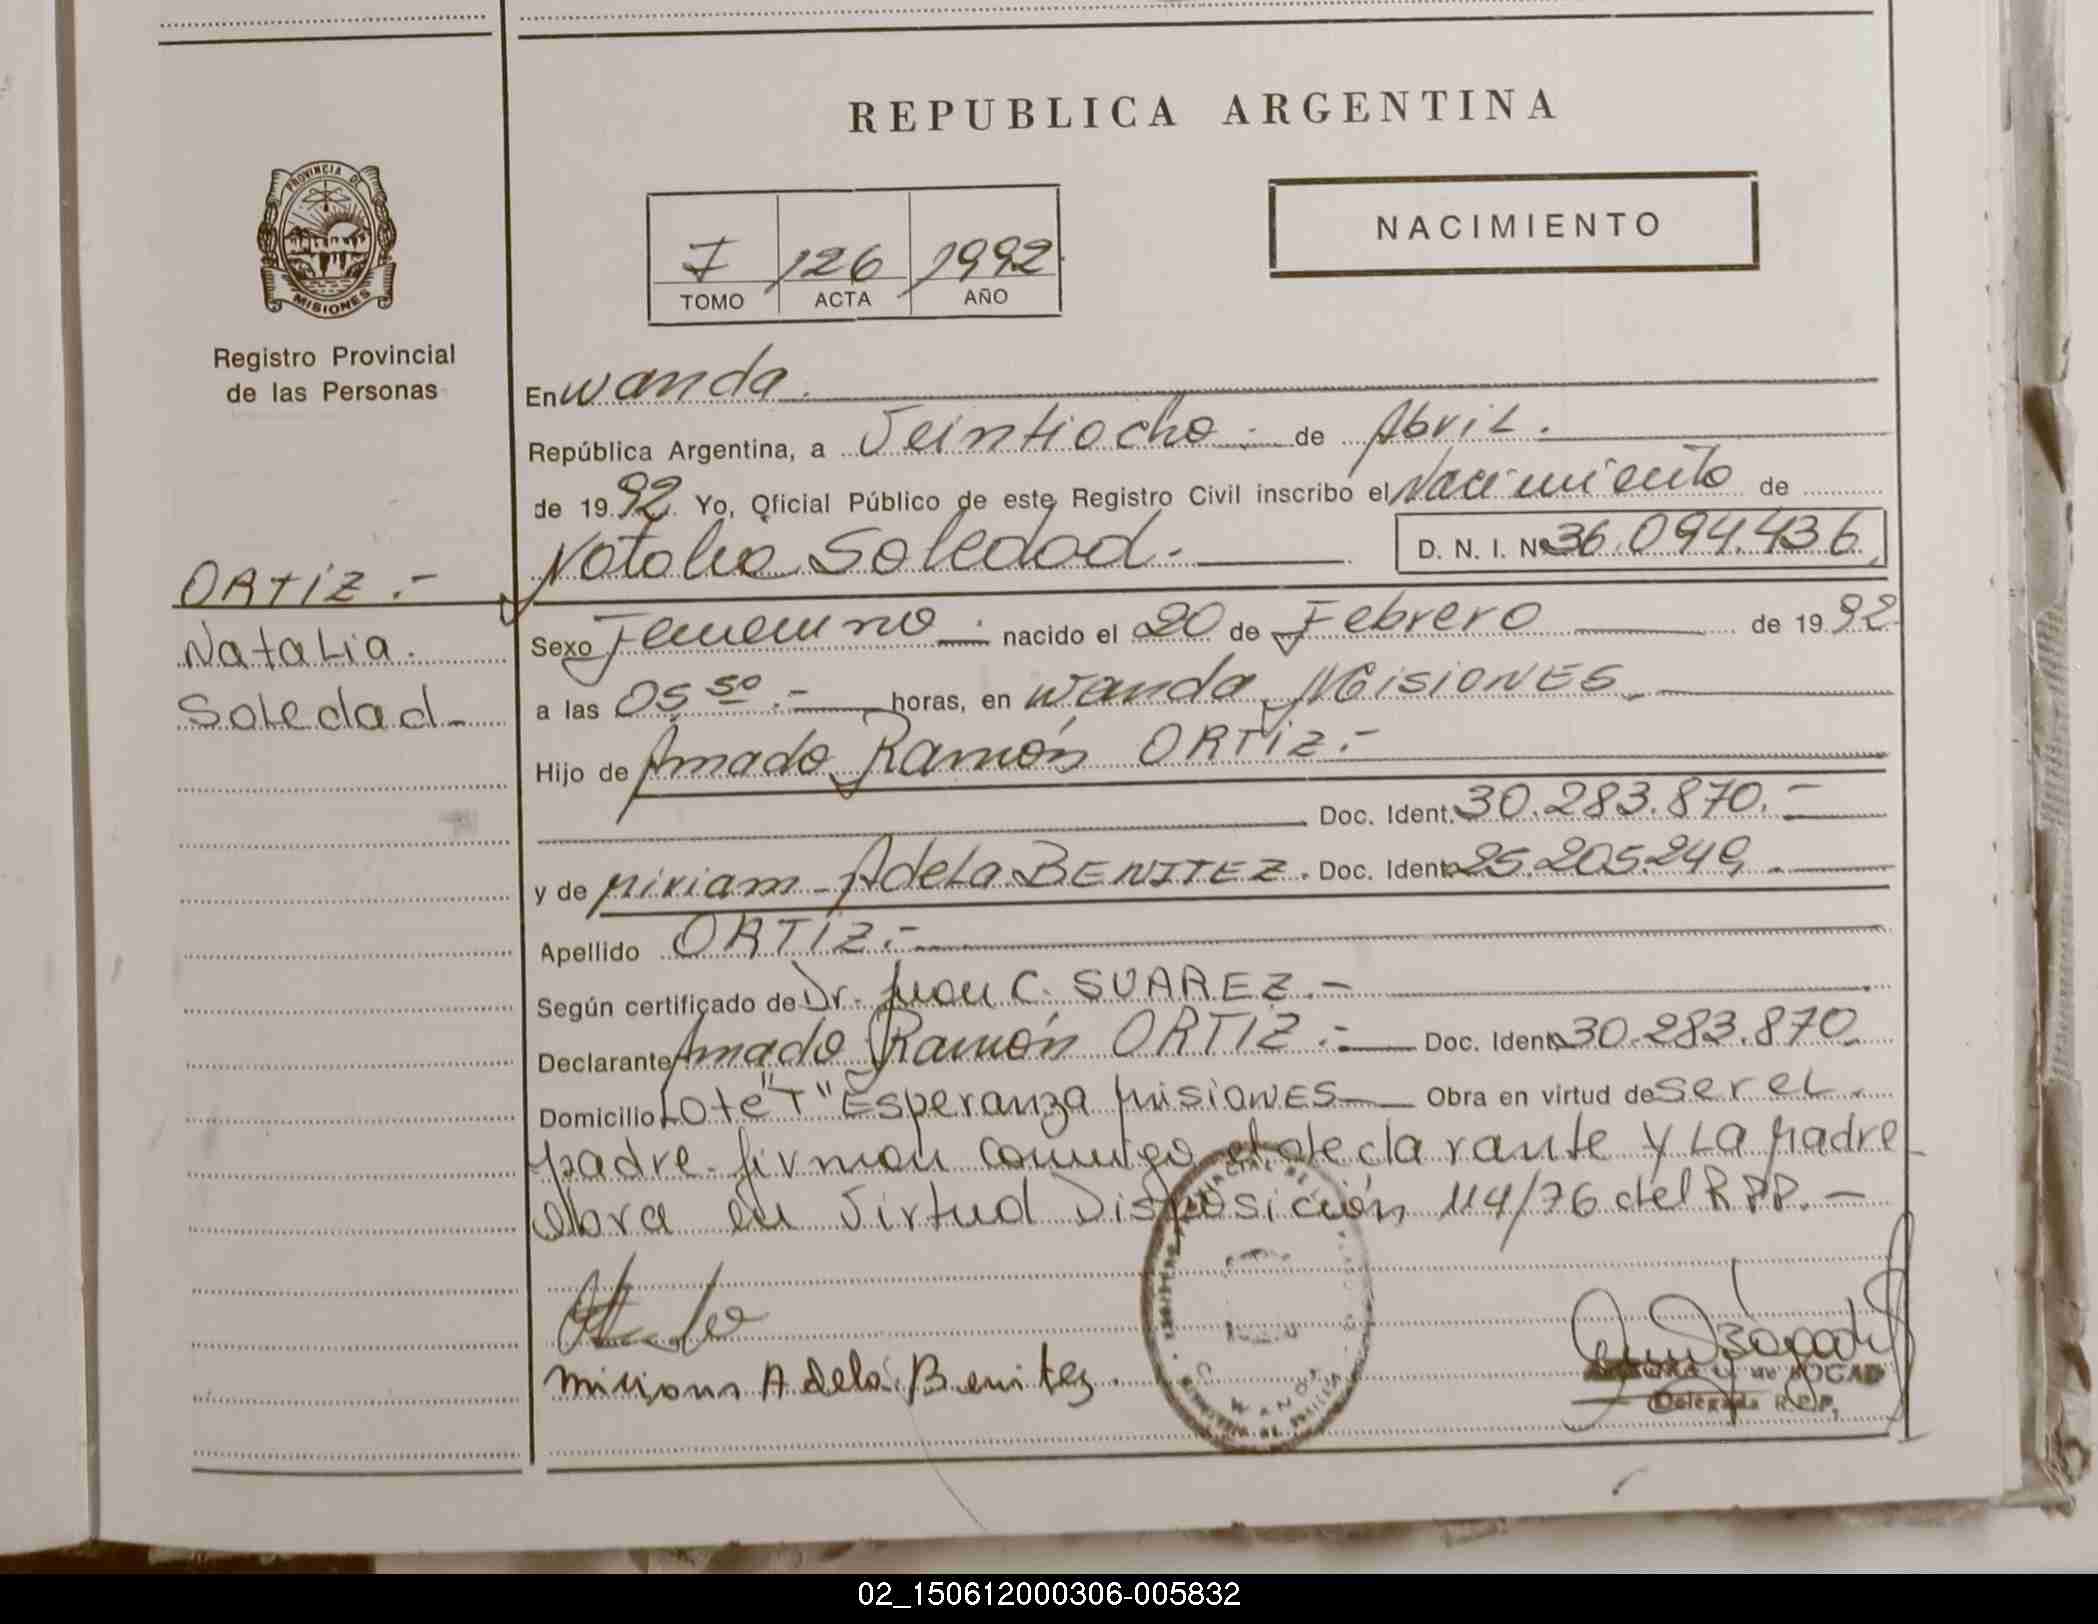 REPUBLICA ARGENTINA
PROVINCIA DE
MISIONES
Registro Provincial
de las Personas
I 126 1992
TOMO ACTA AÑO
NACIMIENTO
En Wanda.
República Argentina, a Veintiocho.- de Abril.
de 1992. Yo, Oficial Público de este Registro Civil inscribo el Nacimiento de
Natalia Soledad.- D. N. I. Nº 36.094.436
ORTIZ.-
Natalia.
Soledad-
Sexo Femenino.- nacido el 20 de Febrero de 1992
a las 05 50.- horas, en Wanda, Misiones.
Hijo de Amado Ramón ORTIZ.-
Doc. Ident. 30.283.870.-
y de Miriam Adela BENITEZ. Doc. Ident. 25.205.249.
Apellido ORTIZ.-
Según certificado de Dr. Juan C. SUAREZ.-
Declarante Amado Ramón ORTIZ.- Doc. Ident. 30.283.870.
Domicilio Lote "T" Esperanza Misiones Obra en virtud de ser el.
padre. firman conmigo el declarante y La Madre
obra en Virtud Disposición 114/76 del RPP.-
Miriam Adela Benitez.
WANDA
de BOGAD
Delegada R.P.P.
02_150612000306-005832